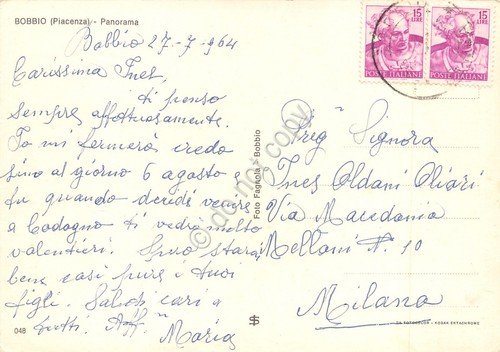 BOBBIO (Piacenza) - Panorama
Bobbio 27-7-964
Carissima Ines,
ti penso
sempre affettuosamente.
Io mi fermerò credo
sino al giorno 6 agosto e
tu quando decidi venire
a Codogno ti vedrò molto
volentieri. Spero starai
bene così pure i tuoi
figli. Saluti cari a
tutti. Aff.
Maria
048
Foto Fagnola - Bobbio
do not copy
15
LIRE
POSTE ITALIANE
15
LIRE
POSTE ITALIANE
Preg. Signora
Ines Oldani Oliari
Via Macedonio
Melloni N. 10
Milano
KODAK EKTACHROME